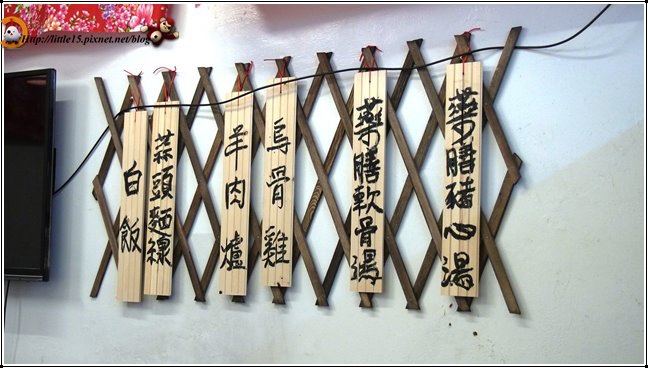 Http://little15.pixnet.net/blog
藥膳豬心湯
藥膳軟骨湯
烏骨雞
羊肉爐
蒜頭麵線
白飯